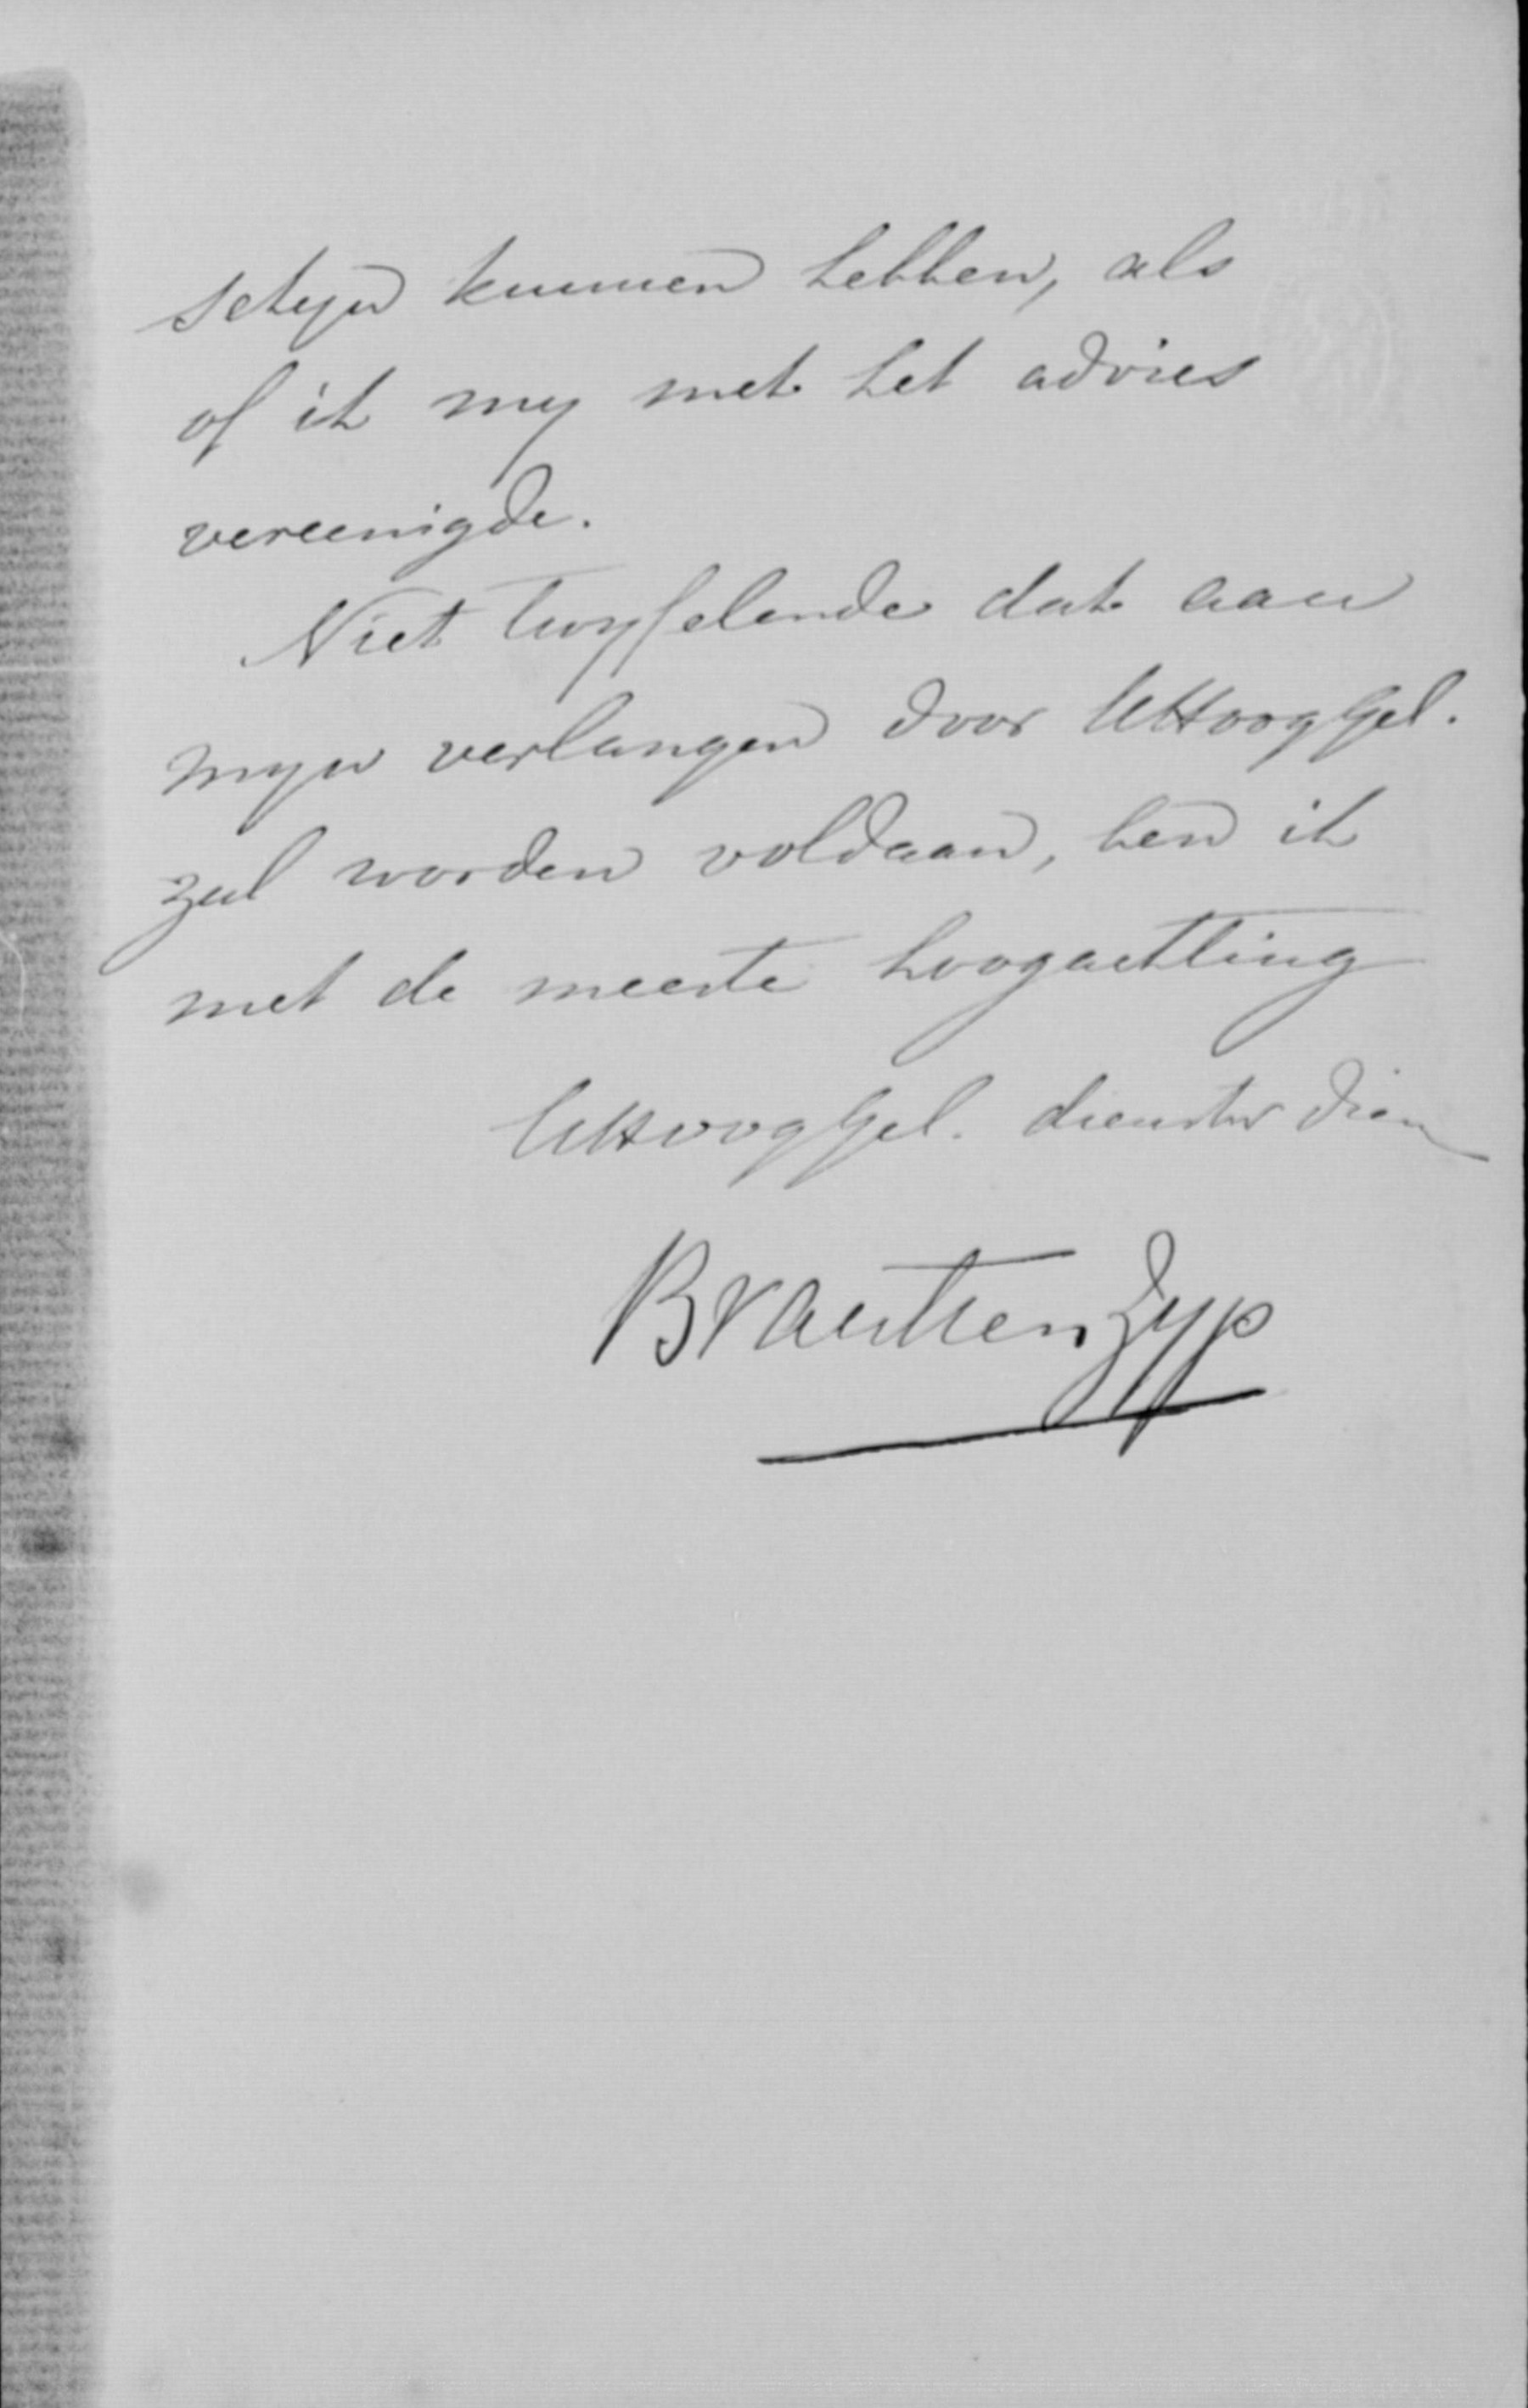 schijn kunnen hebben, als
of ik my met het advies
vereenigde.
Niet twyfelende dat aan
myn verlangen door UHooggel.
zal worden voldaan, ben ik
met de meeste hoogachting
UHooggel. dienstw dien
Brantsen Zyp